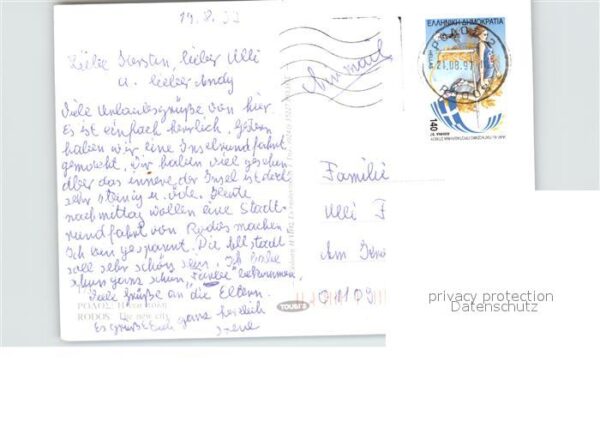 Liebe Kersten, lieber Ulli
u. lieber Andy
Viele Urlaubsgrüße von hier
Es ist einfach herrlich. Gestern
haben wir eine Inselrundfahrt
gemacht. Wir haben viel gesehen
über das innere der Insel ist dort
sehr steinig u. öde. Heute
nachmittag wollen eine Stadt-
rundfahrt von Rodos machen
Ich bin gespannt. Die Altstadt
soll sehr schön sein. Ich habe
schon ganz schön
bekommen.
Viele Grüße an die Eltern.
Es grüßt Euch ganz herzlich
Irene
ΡΟΔΟΣ
RODOS The new city
TOUBI'S
Air mail
ΕΛΛΗΝΙΚΗ ΔΗΜΟΚΡΑΤΙΑ
HELLAS
140
ΡΟΔΟΣ 2
21.08.97
RODOS
Familie
Ulli F
Am
01109
privacy protection
Datenschutz